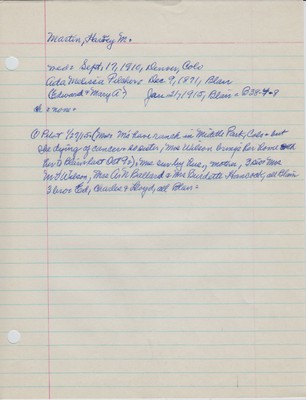 Martin, Harvey M.
mar'd Sept. 17, 1910, Denver, Colo
Ada Melissa Pilcher Dec. 9, 1871, Blair
(Edward & Mary A.) Jan. 21, 1915, Blair = C38-4-8
ch = none =
@ Pilot 1/27/15 = (Mr & Mrs have ranch in Middle Park, Colo = but
she dying of cancer = sister, Mrs Wilson brings her home
her to Blair last Oct 9); Mrs surv by hus., mother, 3 sis: Mrs
Wilson, Mrs Ballard & Mrs Burdette Hancock, all Blair
3 bros Ed, Charles & Floyd, all Blair =